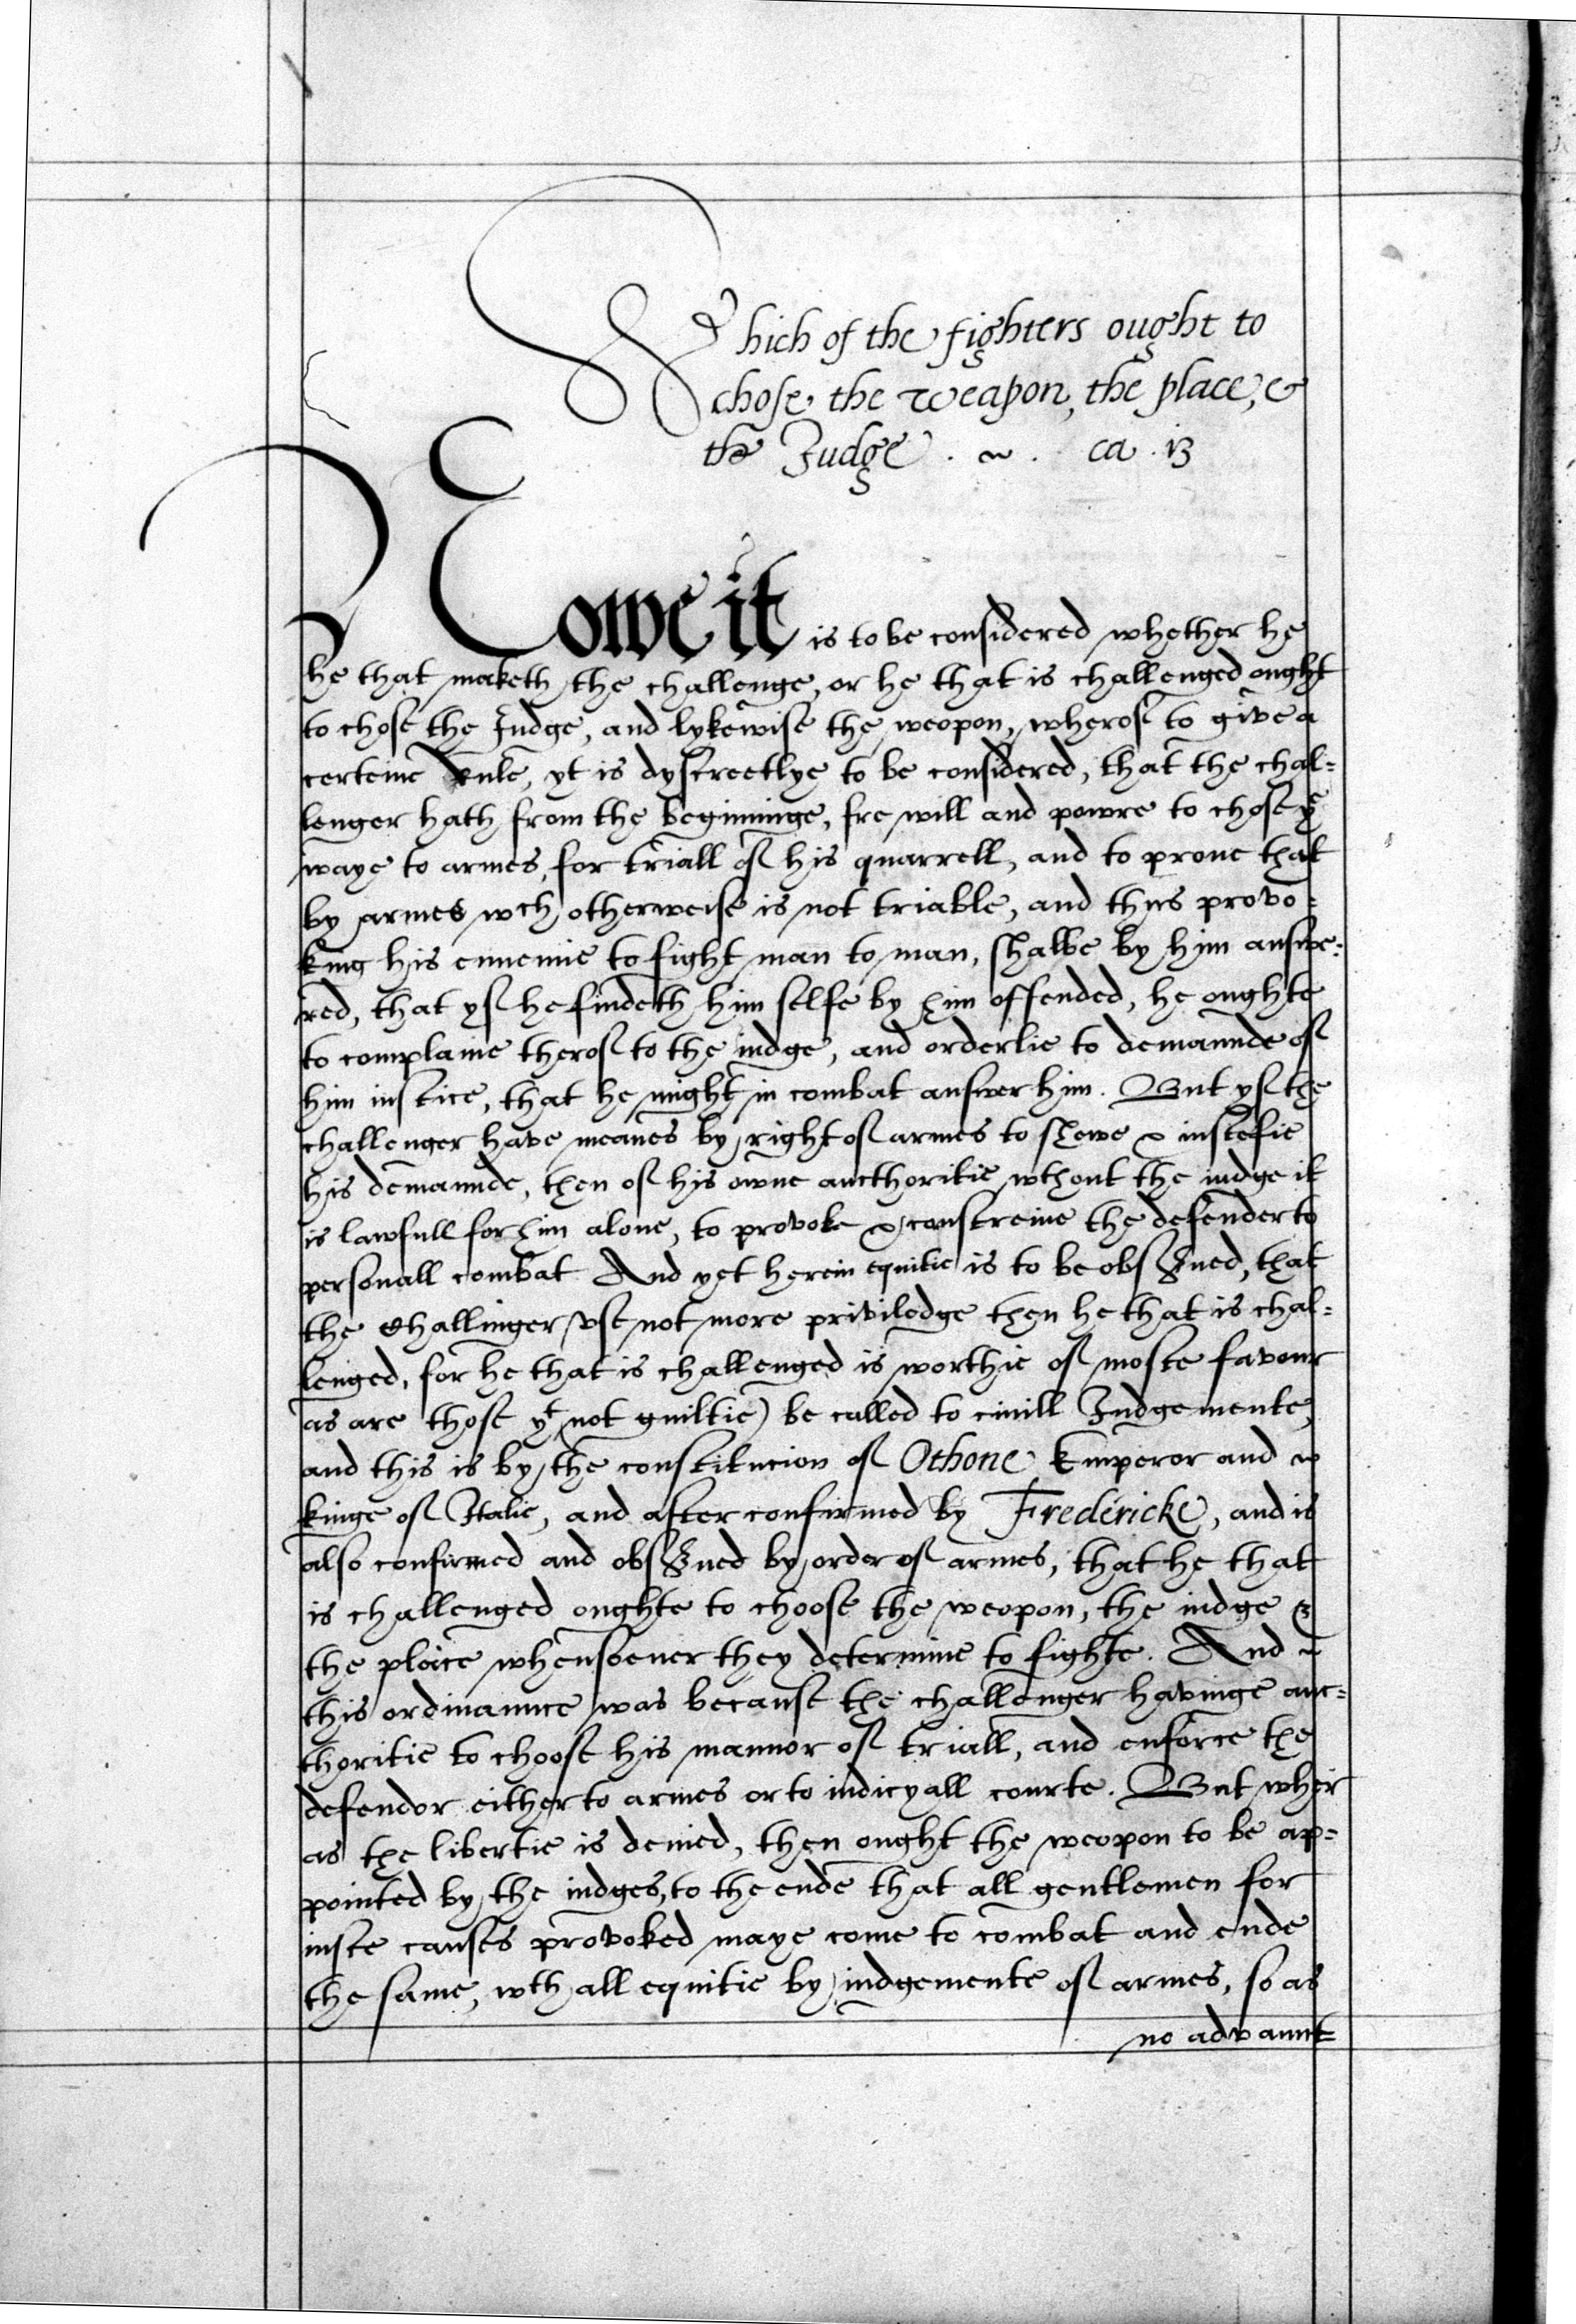 Which of the fighters ought to
chose the weapon, the place, &
the Judge . ~ . ca . 13
Nowe it is to be considered whether he
he that maketh the challenge, or he that is challenged ought
to chose the Judge, and lykewise the weopon, wherof to give a
certeine Rule, yt is dyscreetlye to be considered, that the chal=
lenger hath from the beginninge, fre will and powre to chose yͤ
waye to armes, for triall of his quarrell, and to proue that
by armes wch otherweise is not triable, and thus provo=
king his ennemie to fight man to man, shalbe by him answe=
red, that yf he findeth him selfe by him offended, he oughte
to complaine therof to the iudge, and orderlie to demaunde of
him iustice, that he might in combat answer him. But yf the
challenger have meanes by right of armes to shewe & iustefie
his demaunde, then of his owne aucthoritie wthout the iudge it
is lawfull for him alone, to provoke & constreine the defender to
personall combat And yet herein equitie is to be obsꝭued, that
the Challinger vse not more priviledge then he that is chal=
lenged, for he that is challenged is worthie of moste favour
as are those yᵗ (not guiltie) be called to ciuill Judgemente,
and this is by the constitucion of Othone Emperor and ~
kinge of Italie, and after confirmed by Fredericke, and is
also confirmed and obsꝭued by order of armes, that he that
is challenged oughte to choose the weopon, the iudge &
the place whensoeuer they determine to fighte. And ~
this ordinaunce was because the challenger havinge auc=
thoritie to choose his mannor of triall, and enforce the
defendor either to armes or to iudicyall courte. But wher
as the libertie is denied, then ought the weopon to be ap=
pointed by the iudges, to the ende that all gentlemen for
iuste causes provoked maye come to combat and ende
the same, wth all equitie by iudgemente of armes, so as
no advaunt=